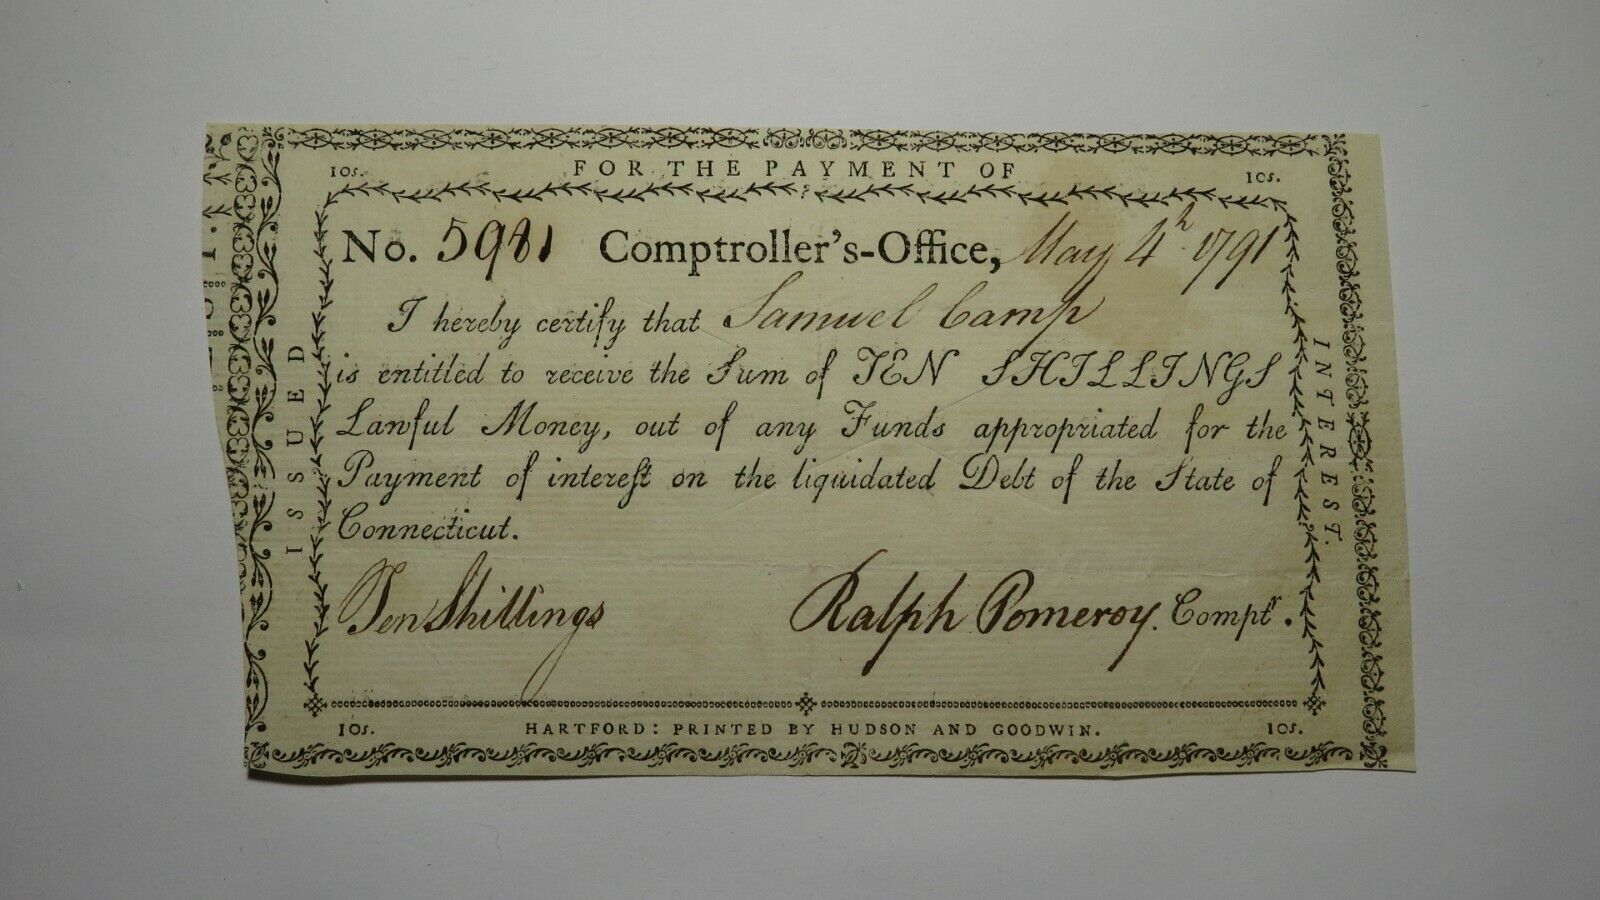 10s. FOR THE PAYMENT OF 10s.
No. 5981 Comptroller's-Office, May 4h 1791
I hereby certify that Samuel Camp
is entitled to receive the Sum of TEN SHILLINGS
Lawful Money, out of any Funds appropriated for the
Payment of intereſt on the liquidated Debt of the State of
Connecticut.
Ten Shillings Ralph Pomeroy. Comptr.
10s. HARTFORD: PRINTED BY HUDSON AND GOODWIN. 10s.
ISSUED
INTEREST.